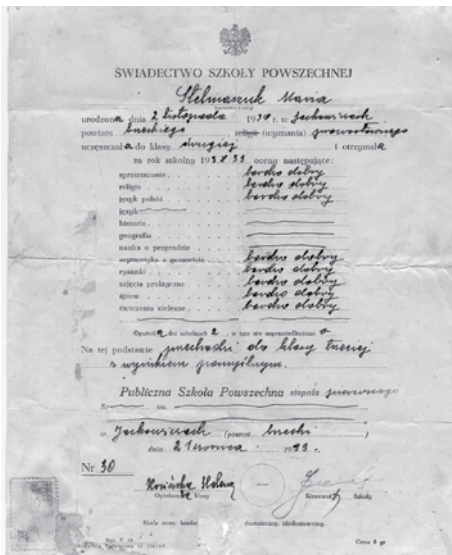 ŚWIADECTWO SZKOŁY POWSZECHNEJ
Stelmaszuk Maria
urodzona dnia 2 listopada 19 r. w Jackowicach
powiatu brzeskiego religii (wyznania) prawosławnego
uczęszczała do klasy drugiej i otrzymała
za rok szkolny 1938/39 oceny następujące:
sprawowanie bardzo dobry
religia bardzo dobry
język polski bardzo dobry
język
historia
geografia
nauka o przyrodzie
arytmetyka z geometrią bardzo dobry
rysunki bardzo dobry
zajęcia praktyczne bardzo dobry
śpiew bardzo dobry
ćwiczenia cielesne bardzo dobry
Opuściła dni szkolnych 2, w tym nie usprawiedliwiono 0
Na tej podstawie przechodzi do klasy trzeciej
z wynikiem pomyślnym.
Publiczna Szkoła Powszechna stopnia pierwszego
Nr im.
w Jackowicach (powiat brzeski)
dnia 21 czerwca 1939 r.
Nr 30
Helena
Opiekun klasy Kierownik Szkoły
Skala ocen: bardzo dostateczny, niedostateczny.
Cena 8 gr